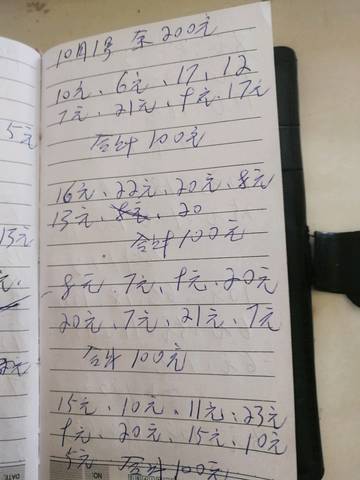 5元
13元
10月1号 200元
10元、6元、17、12
7元、21元、十元、17元
合计100元
16元、22元、20元、8元
13元、20
合计100元
8元、7元、十元、20元
20元、7元、21元、7元
合计100元
15元、10元、11元、23元
十元、20元、15元、10元
5元 合计100元
DATE
NO.